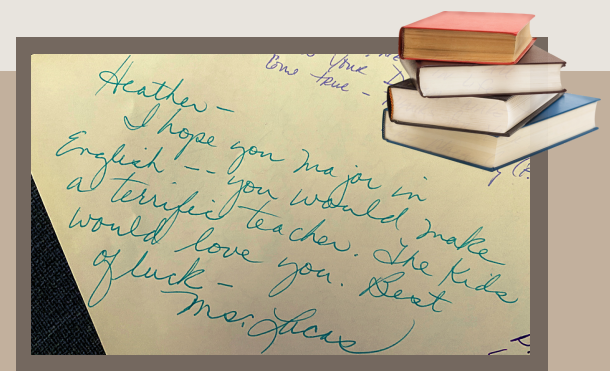 Your
Come true -
Heather -
I hope you major in
English -- you would make
a terrific teacher. The Kids
would love you. Best
of luck -
Ms. Lucas